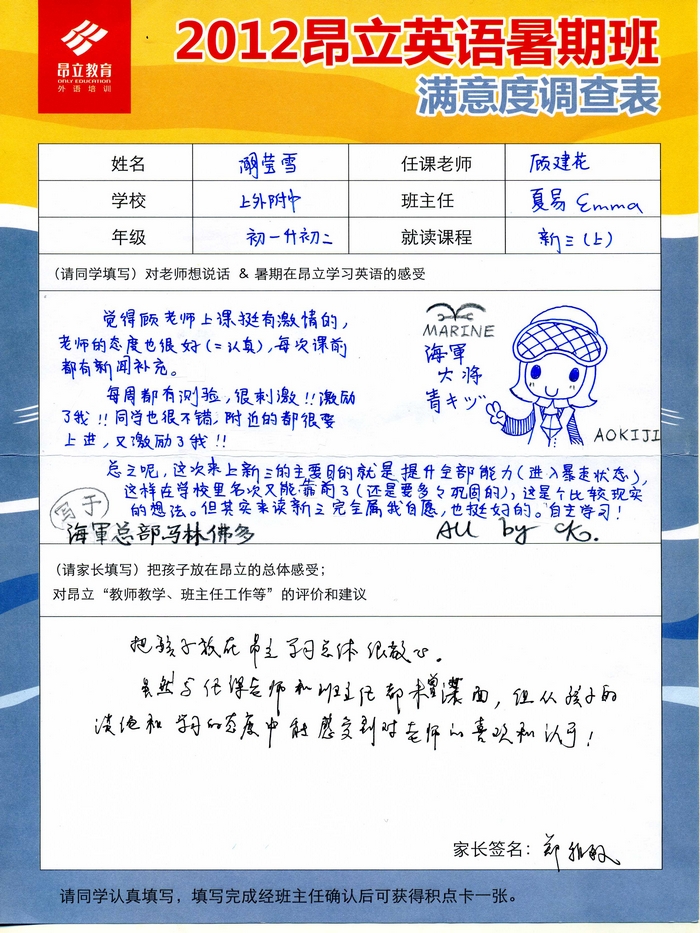 昂立教育
ONLY EDUCATION
外语培训
2012昂立英语暑期班
满意度调查表
姓名 莹雪 任课老师 顾建花
学校 上外附中 班主任 夏易 Emma
年级 初一升初二 就读课程 新三(上)
(请同学填写)对老师想说话 & 暑期在昂立学习英语的感受
觉得顾老师上课挺有激情的,
老师的态度也很好(=认真),每次课前
都有新闻补充。
每周都有测验,很刺激!!激励
了我!!同学也很不错,附近的都很要
上进,又激励了我!!
MARINE
海軍
大将
青キジ
AOKIJI
总之呢,这次来上新三的主要目的就是提升全部能力(进入暴走状态),
这样在学校里名次又能靠前了(还是要多多巩固的),这是个比较现实
的想法。但其实来读新三完全属我自愿,也挺好的。自主学习!
写于
海軍总部马林佛多
All by
(请家长填写)把孩子放在昂立的总体感受;
对昂立“教师教学、班主任工作等”的评价和建议
把孩子放在昂立学习总体很放心。
虽然与任课老师和班主任都未曾谋面,但从孩子的
谈论和学习的态度中能感受到对老师的喜欢和认可!
家长签名:郑
请同学认真填写,填写完成经班主任确认后可获得积点卡一张。